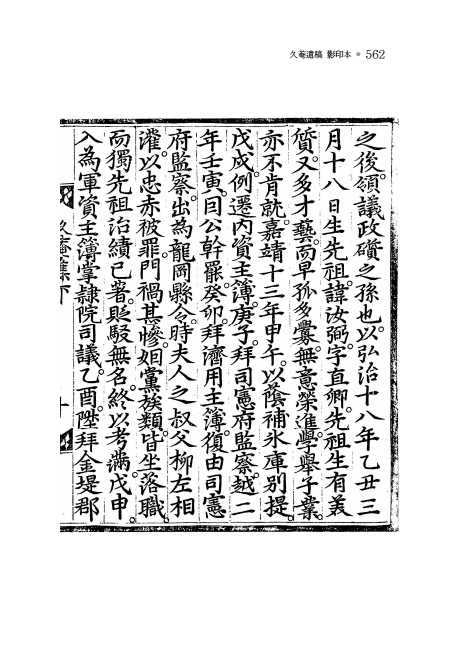 久菴遺稿 影印本 ● 562
之後領議政礩之孫也以弘治十八年乙丑三
月十八日生先祖諱汝弼字直卿先祖生有美
質又多才藝而早孤多釁無意榮進學擧子業
亦不肯就嘉靖十三年甲午以蔭補氷庫別提
戊戌例遷內資主簿庚子拜司憲府監察越二
年壬寅因公幹罷癸卯拜濟用主簿復由司憲
府監察出為龍岡縣令時夫人之叔父柳左相
灌以忠赤被罪門禍甚慘姻黨族類皆坐落職
而獨先祖治績已著貶駁無名終以考滿戊申
入為軍資主簿掌隷院司議乙酉陞拜金堤郡
久菴集下
十